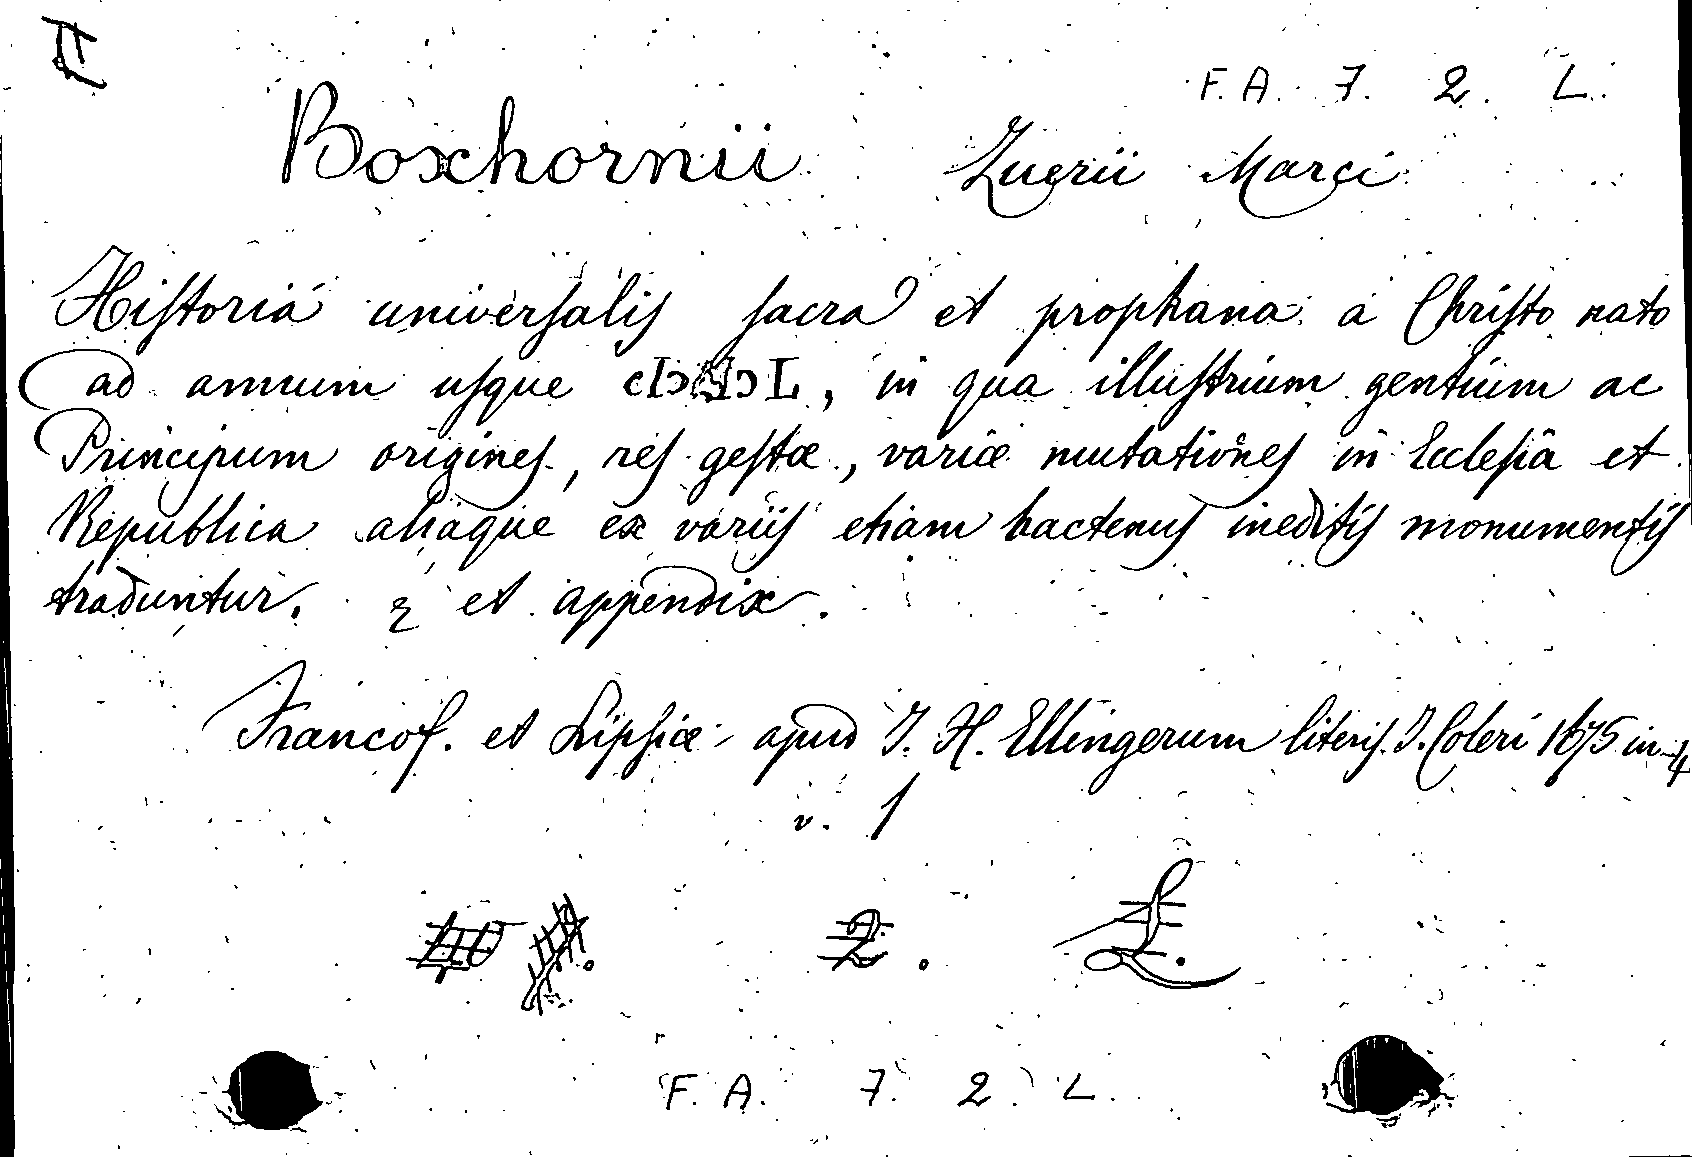 II
F. A. 7. 2. L.
Boxhornii Zuerii Marci
Hiſtoria univerſaliſ ſacra et prophana a Chriſto nato
ad annum uſque cIↄIↄL, in qua illuſtrium gentium ac
Principum origineſ, reſ geſtæ, variæ mutationeſ in Eccleſiâ et
Republica aliaque ex variiſ etiam hactenuſ ineditiſ monumentiſ
traduntur. & et appendix.
Francof. et Lipſiæ apud J. H. Ellingerum literiſ J. Coleri 1675 in-4
v. 1
2. L.
F. A. 7. 2. L.